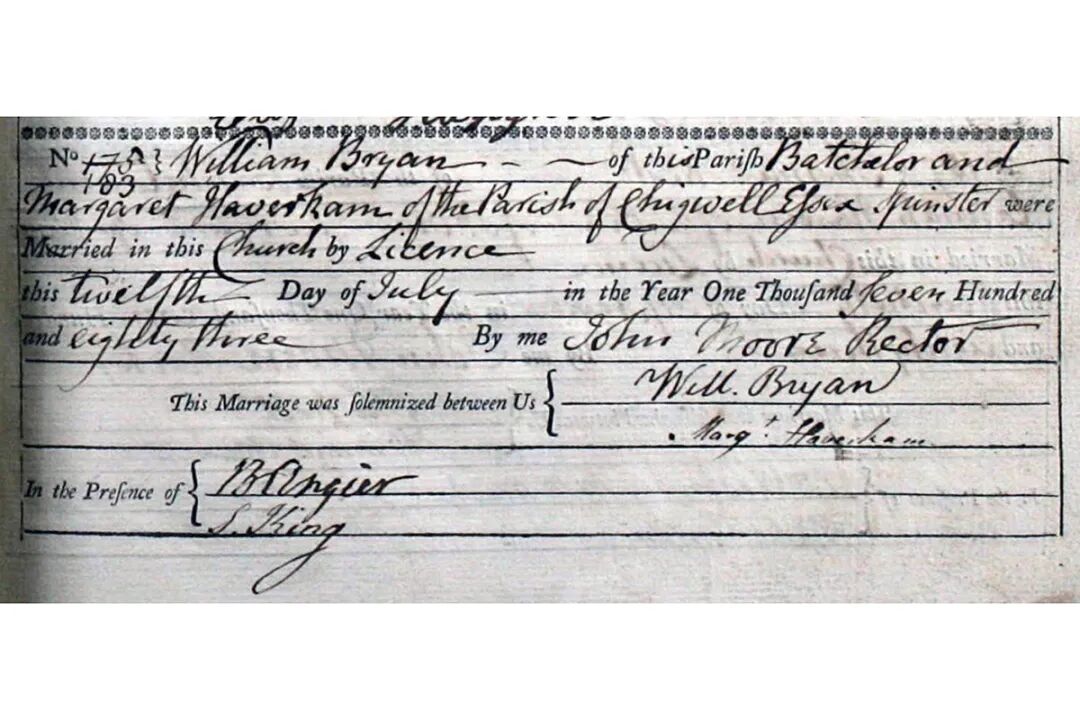 No 1783 } William Bryan — — of this Pariſh Batchelor and
Margaret Haverkam of the Parish of Chigwell Eſsex Spinster were
Married in this Church by Licence
this twelfth Day of July — in the Year One Thouſand Seven Hundred
and eighty three By me John Moore Rector
This Marriage was ſolemnized between Us { Will. Bryan
Margt. Haverkam
In the Preſence of { B Angier
S. King